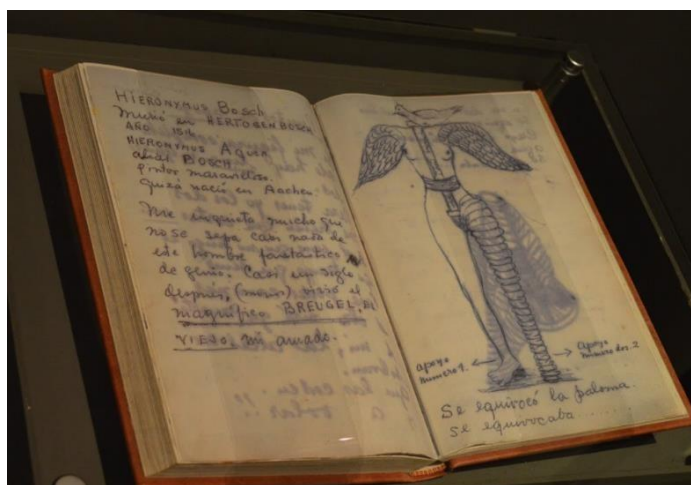 HIERONYMUS Bosch
murió en HERTOGENBOSCH
AÑO 1516
HIERONYMUS AQUEN
alias BOSCH.
Pintor maravilloso.
quizá nació en Aachen.
Me inquieta mucho que
no se sepa casi nada de
este hombre fantástico
de genio. Casi un siglo
después, (menos) vivió el
magnífico BREUGEL, EL
VIEJO, mi amado.
apoyo
numero 1.
apoyo
numero dos. 2
Se equivocó la paloma.
se equivocaba........